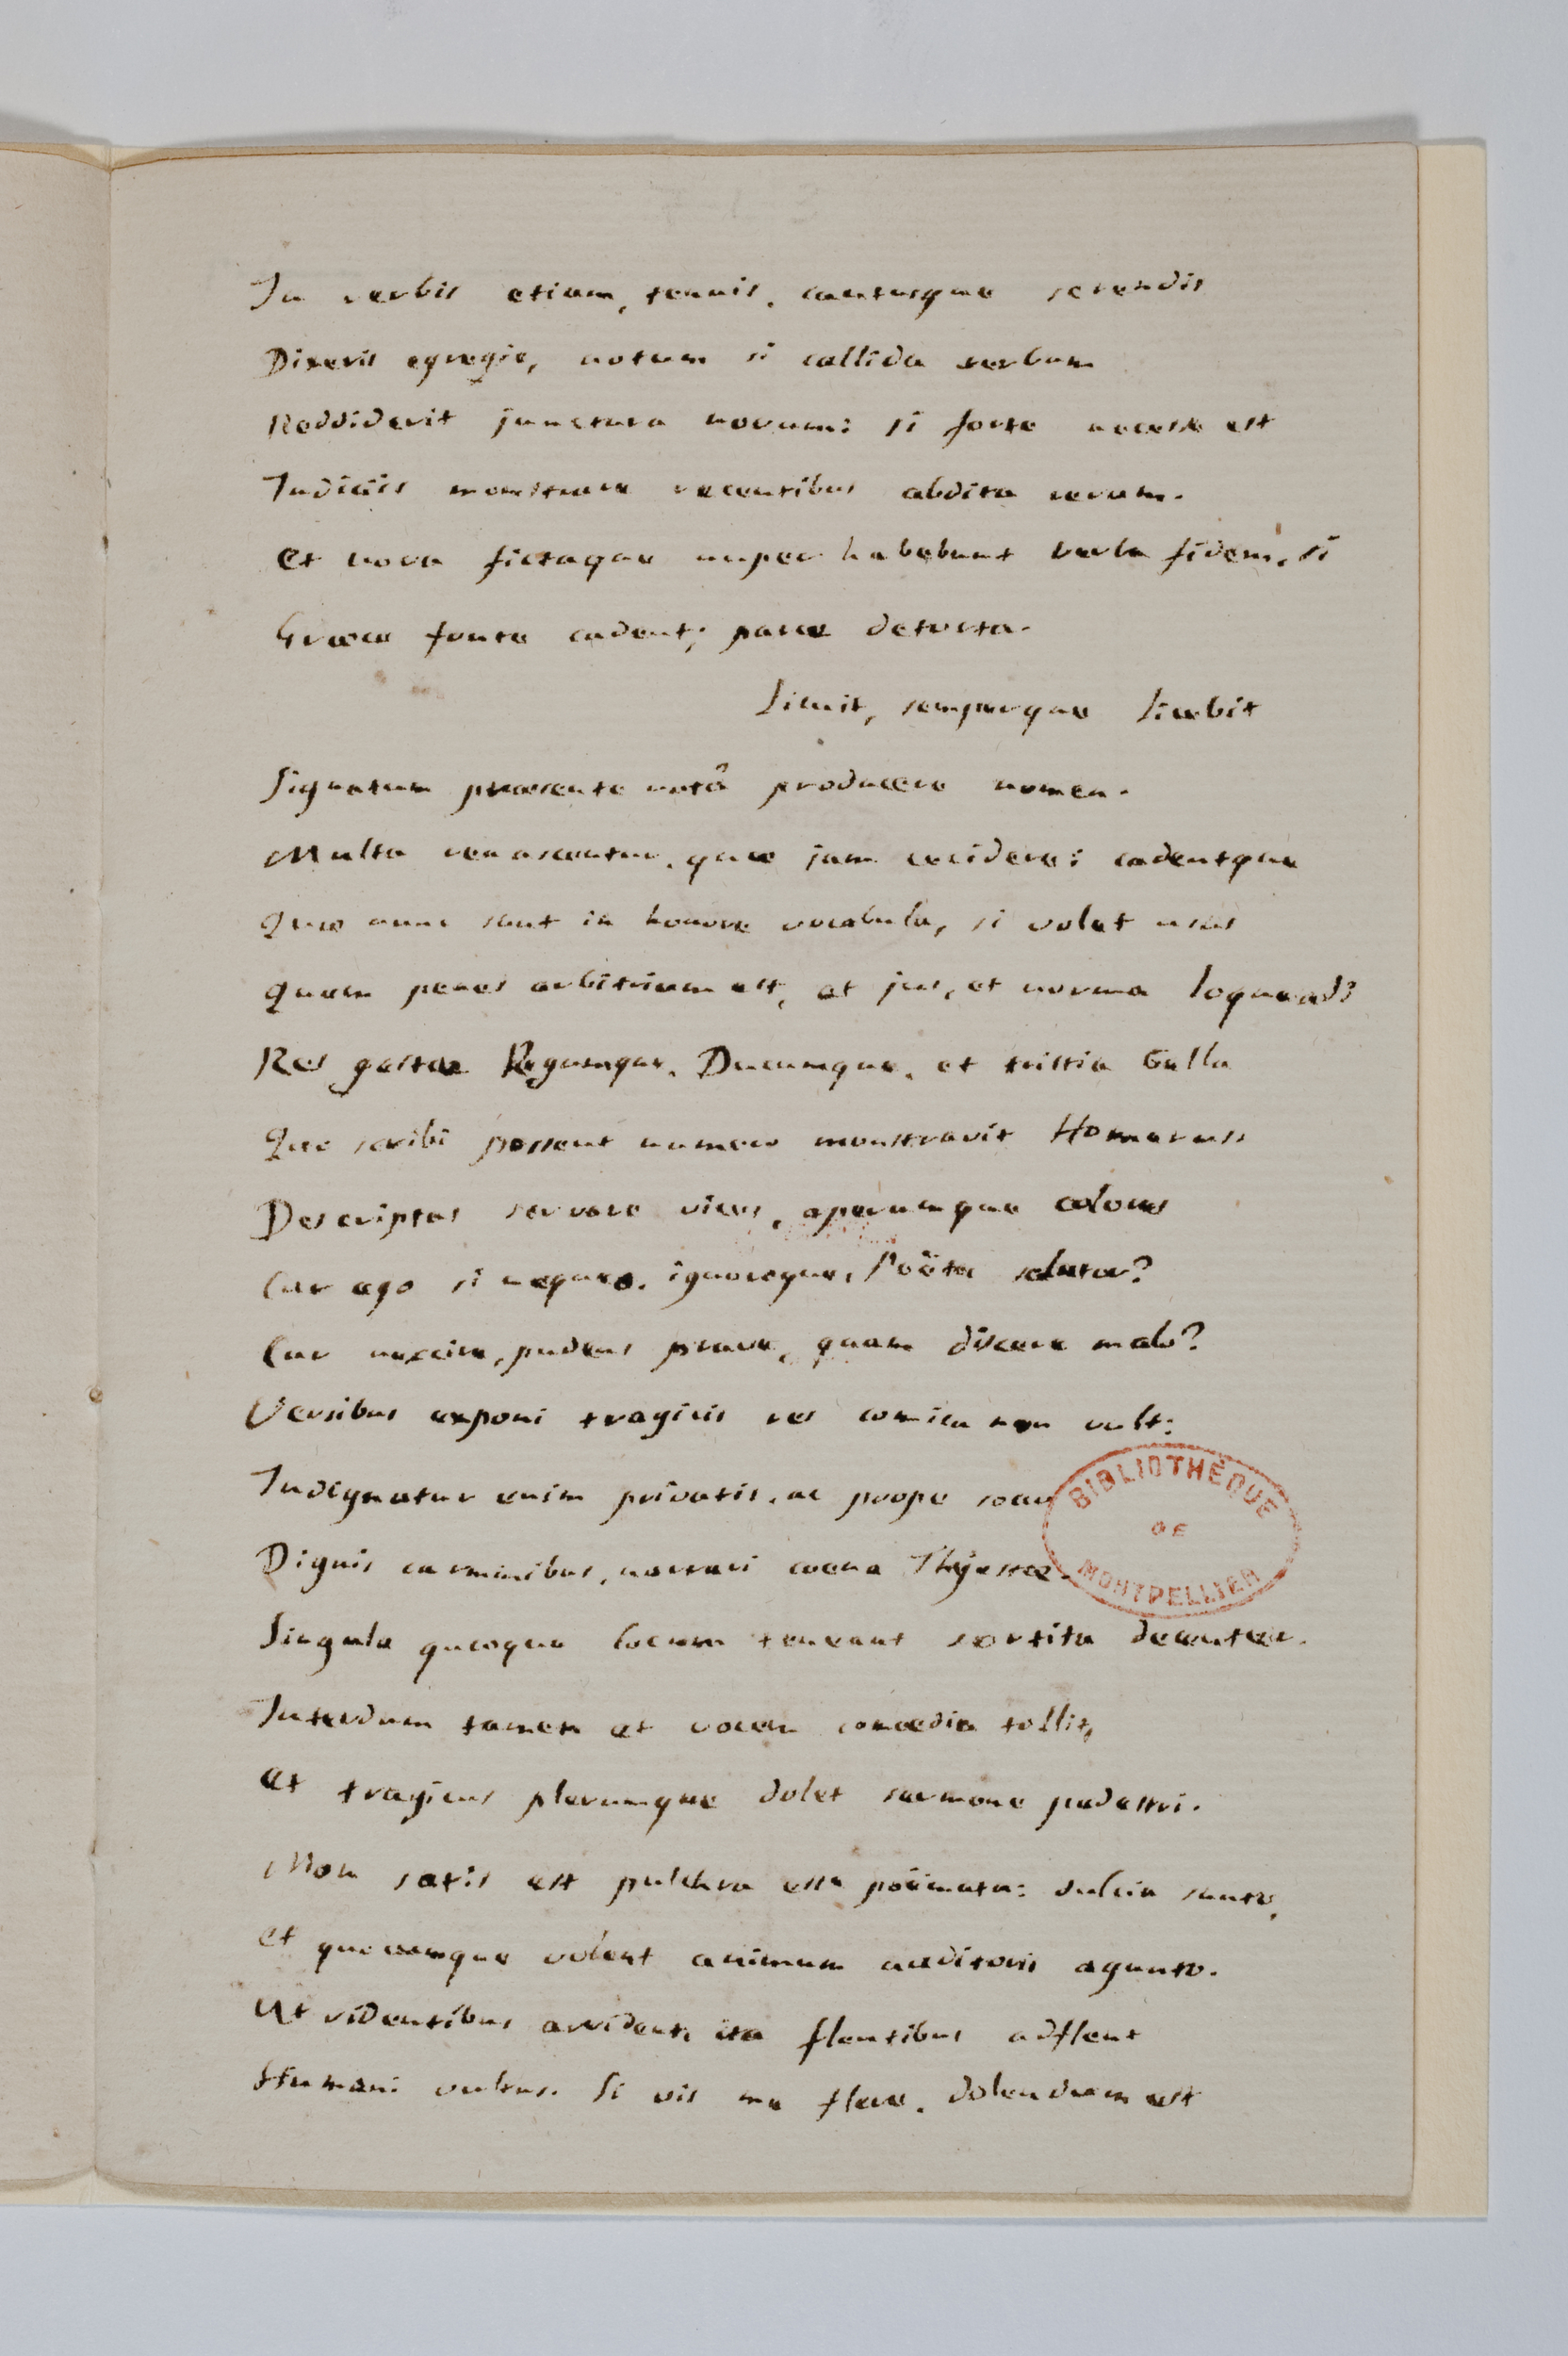 In verbis etiam, tenuis, cautusque serendis
Dixeris egregie, notum si callida verbum
Reddiderit junctura novum: si forte necesse est
Indiciis monstrare recentibus abdita rerum.
Et nova fictaque nuper habebunt verba fidem, si
Graeco fonte cadent; parce detorta.
Licuit, semperque licebit
Signatum praesente notâ producere nomen.
Multa renascentur, quae jam cecidere; cadentque
Quae nunc sunt in honore vocabula, si volet usus
Quem penes arbitrium est, et jus, et norma loquendi
Res gestae Regumque, Ducumque, et tristia bella
Quo scribi possent numero monstravit Homerus.
Descriptas servare vices, operumque colores
Cur ego si nequeo, ignoroque, Poëta salutor?
Cur nescire, pudens prave, quam discere malo?
Versibus exponi tragicis res comica non vult:
Indignatur enim privatis, ac prope socc
BIBLIOTHÈQUE
DE
MONTPELLIER
Dignis carminibus, narrari coena Thyestae.
Singula quaeque locum teneant sortita decenter.
Interdum tamen et vocem comoedia tollit,
Et tragicus plerumque dolet sermone pedestri.
Non satis est pulchra esse poëmata: dulcia sunto,
Et quocumque volent animum auditoris agunto.
Ut ridentibus arrident, ita flentibus adflent
Humani vultus. Si vis me flere, dolendum est